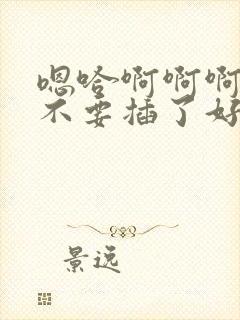 嗯哈~啊啊啊
不要插了好
景远